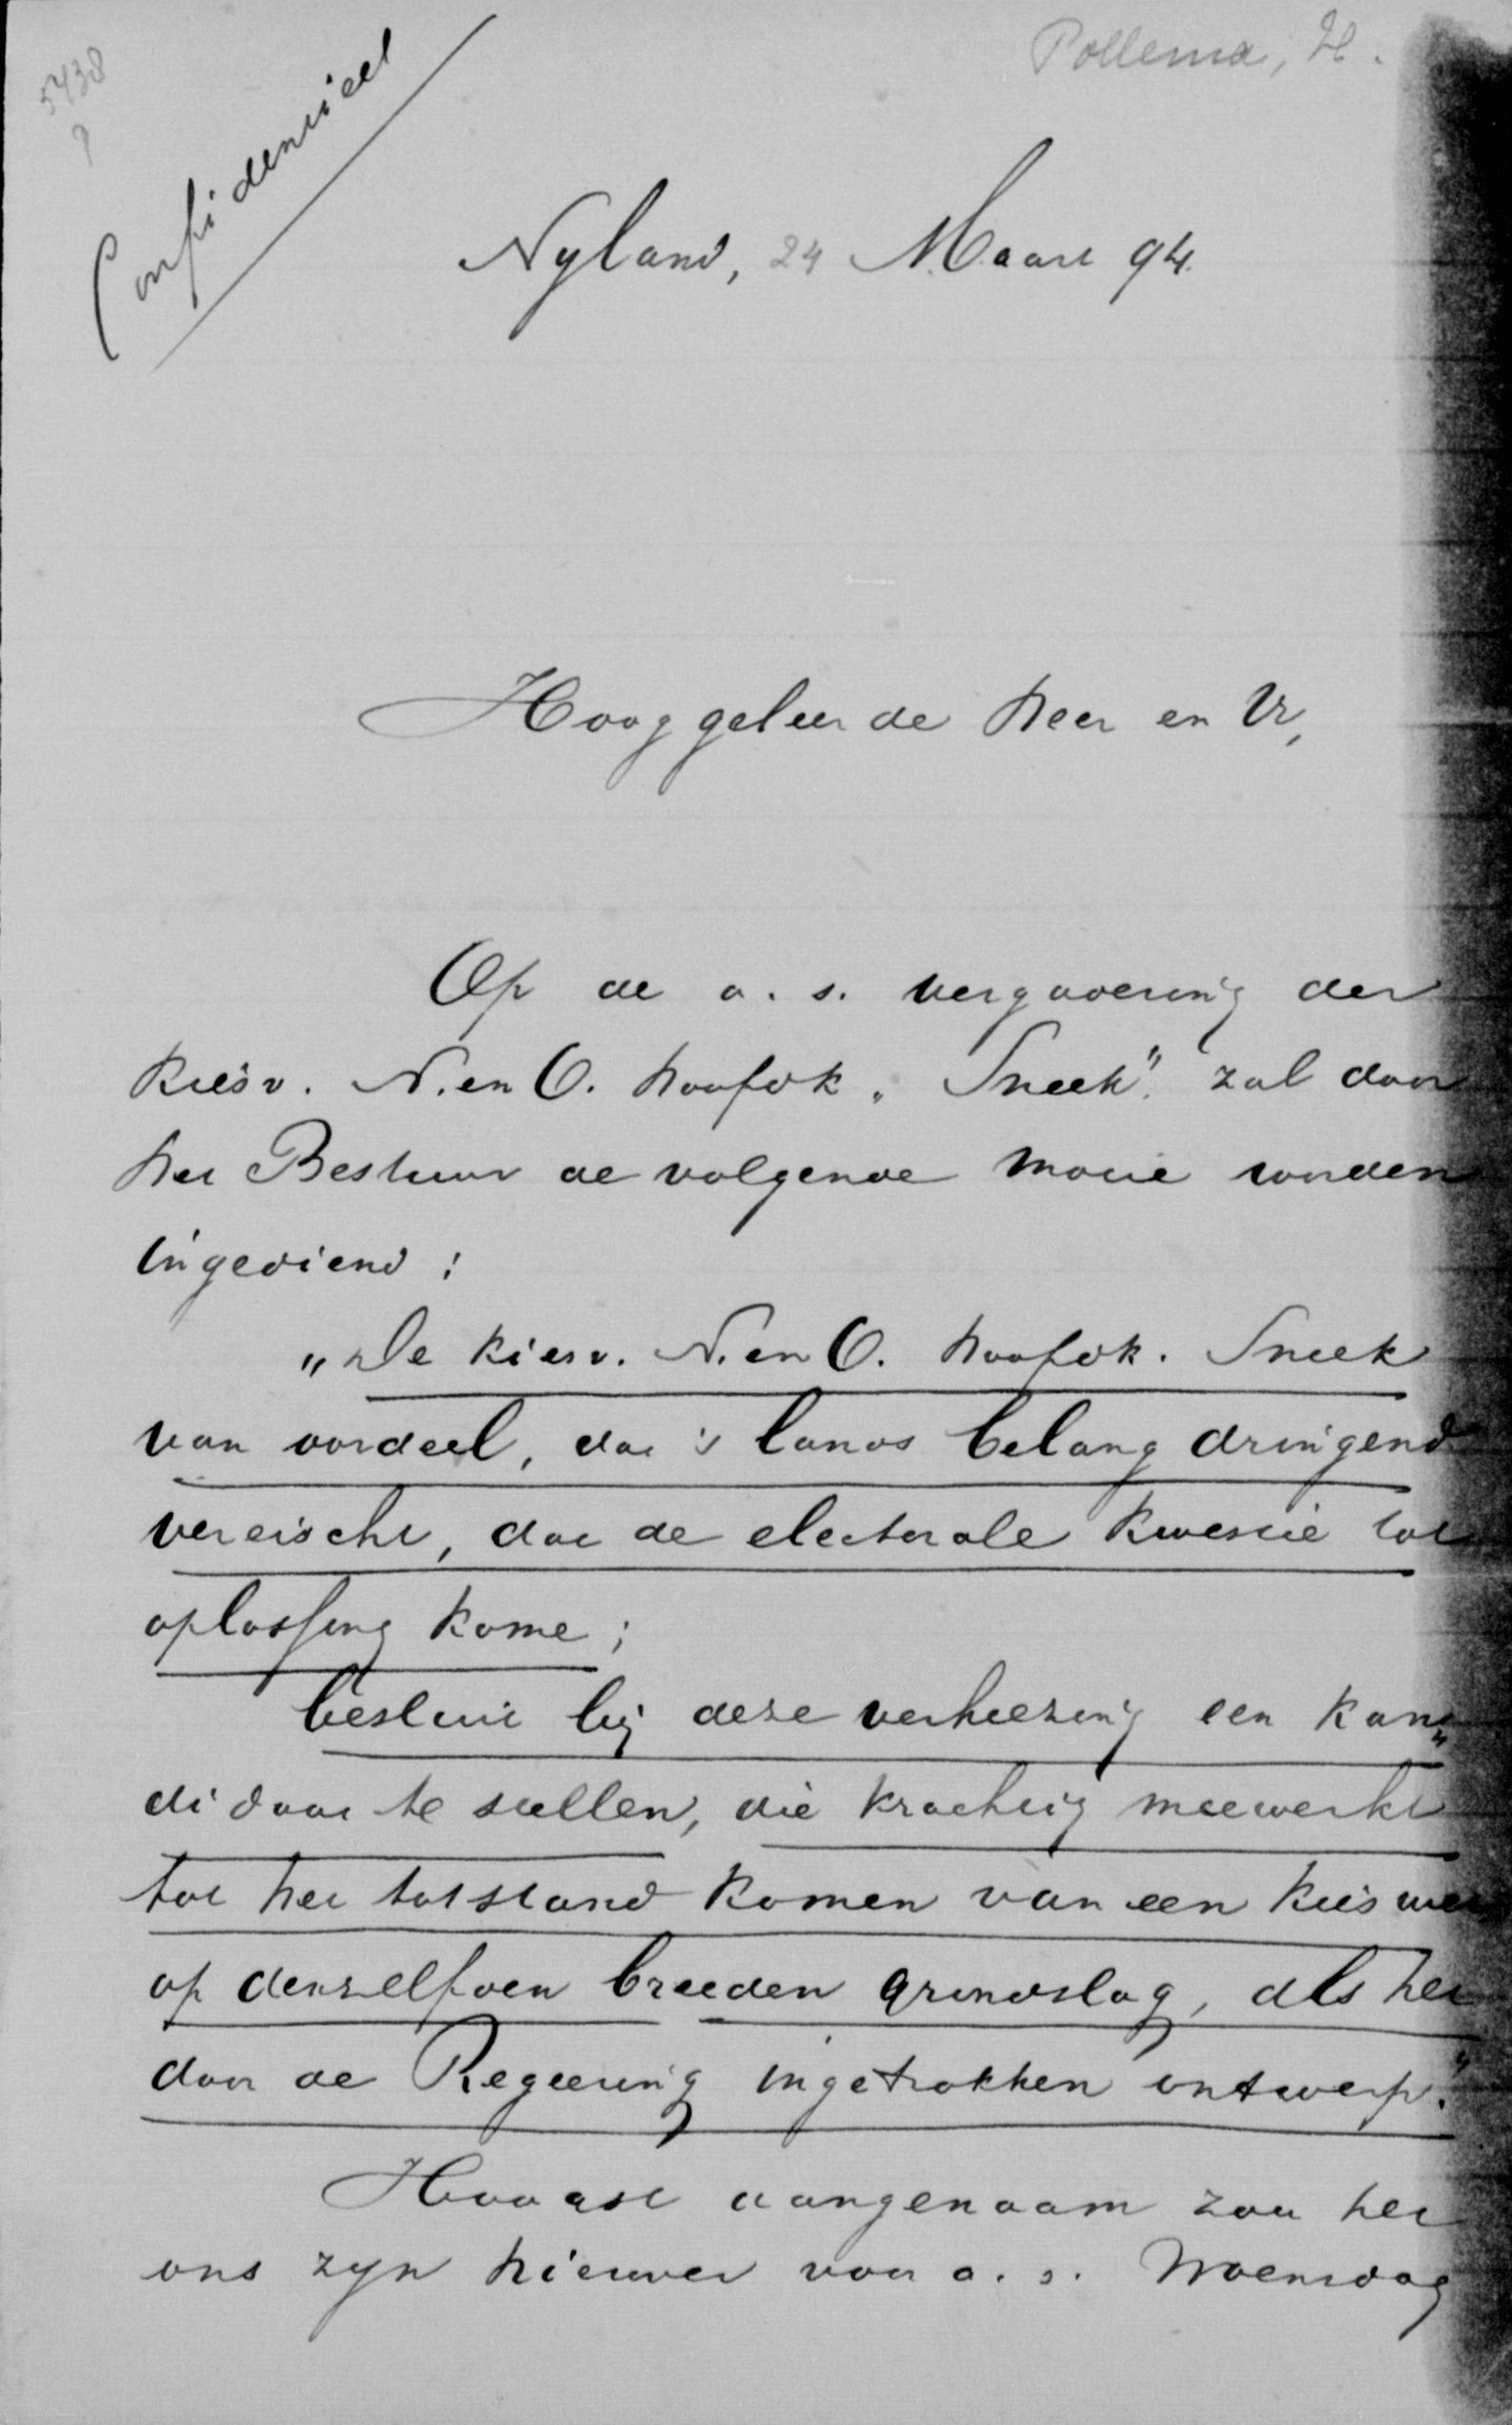 5438
Pollema, H.
Confidentieel
Nyland, 24 Maart 94.
Hooggeleerde heer en Vr,
Op de a. s. vergadering der
kiesv. N. en O. hoofdk. „Sneek” zal door
het Bestuur de volgende motie worden
ingediend:
„De kiesv. N. en O. hoofdk. Sneek
van oordeel, dat 's lands belang dringend
vereischt, dat de electorale kwestie tot
oplossing kome;
besluit bij deze verkiezing een kan„
didaat te stellen, die krachtig meewerkt
tot het totstand komen van een kieswet
op denzelfden breeden grondslag, als het
door de Regeering ingetrokken ontwerp.”
Hoogst aangenaam zou het
ons zyn hierover voor a. s. Woensdag